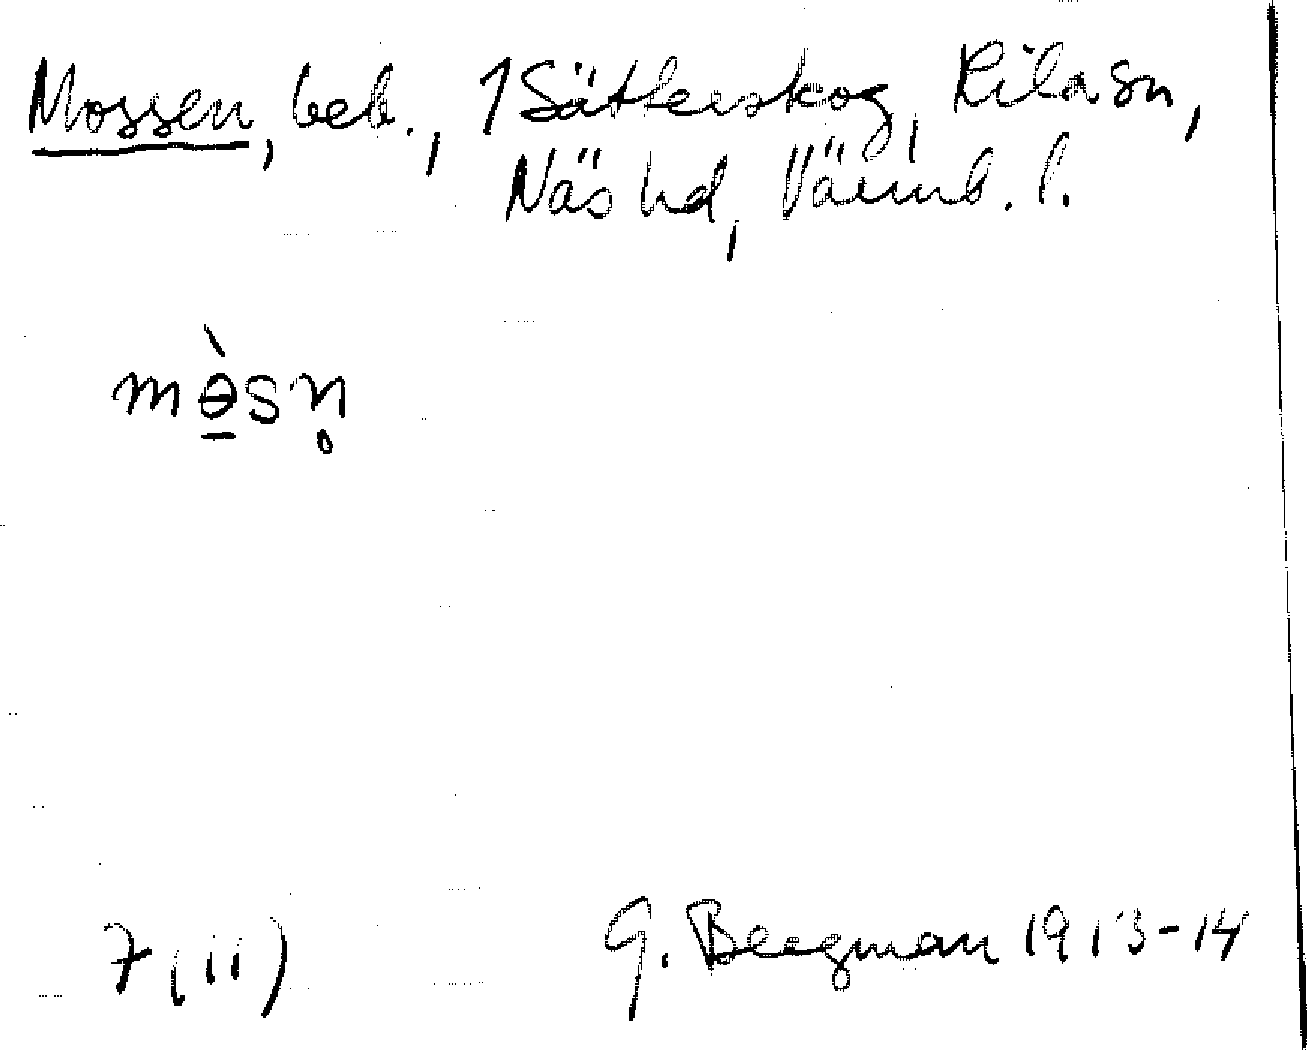 Mossen, beb., 1 Sätterskog, Kila sn,
Näs hd, Värml. l.
mɵ̠̀sn̥
7 (ii)
G. Bergman 1913-14